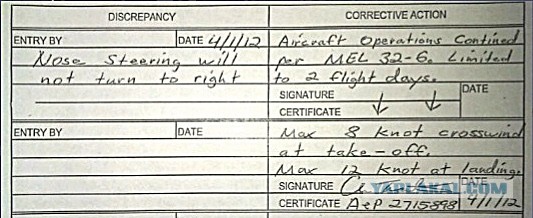 DISCREPANCY CORRECTIVE ACTION
ENTRY BY DATE 4/1/12 Aircraft Operations Contined
Nose Steering will per MEL 32-6. Limited
not turn to right to 2 flight days.
SIGNATURE DATE
CERTIFICATE
ENTRY BY DATE Max 8 Knot crosswind
at take-off.
Max 12 Knot at landing.
SIGNATURE DATE
YAPLAKAL.COM
CERTIFICATE A&P 2715898 4/1/12